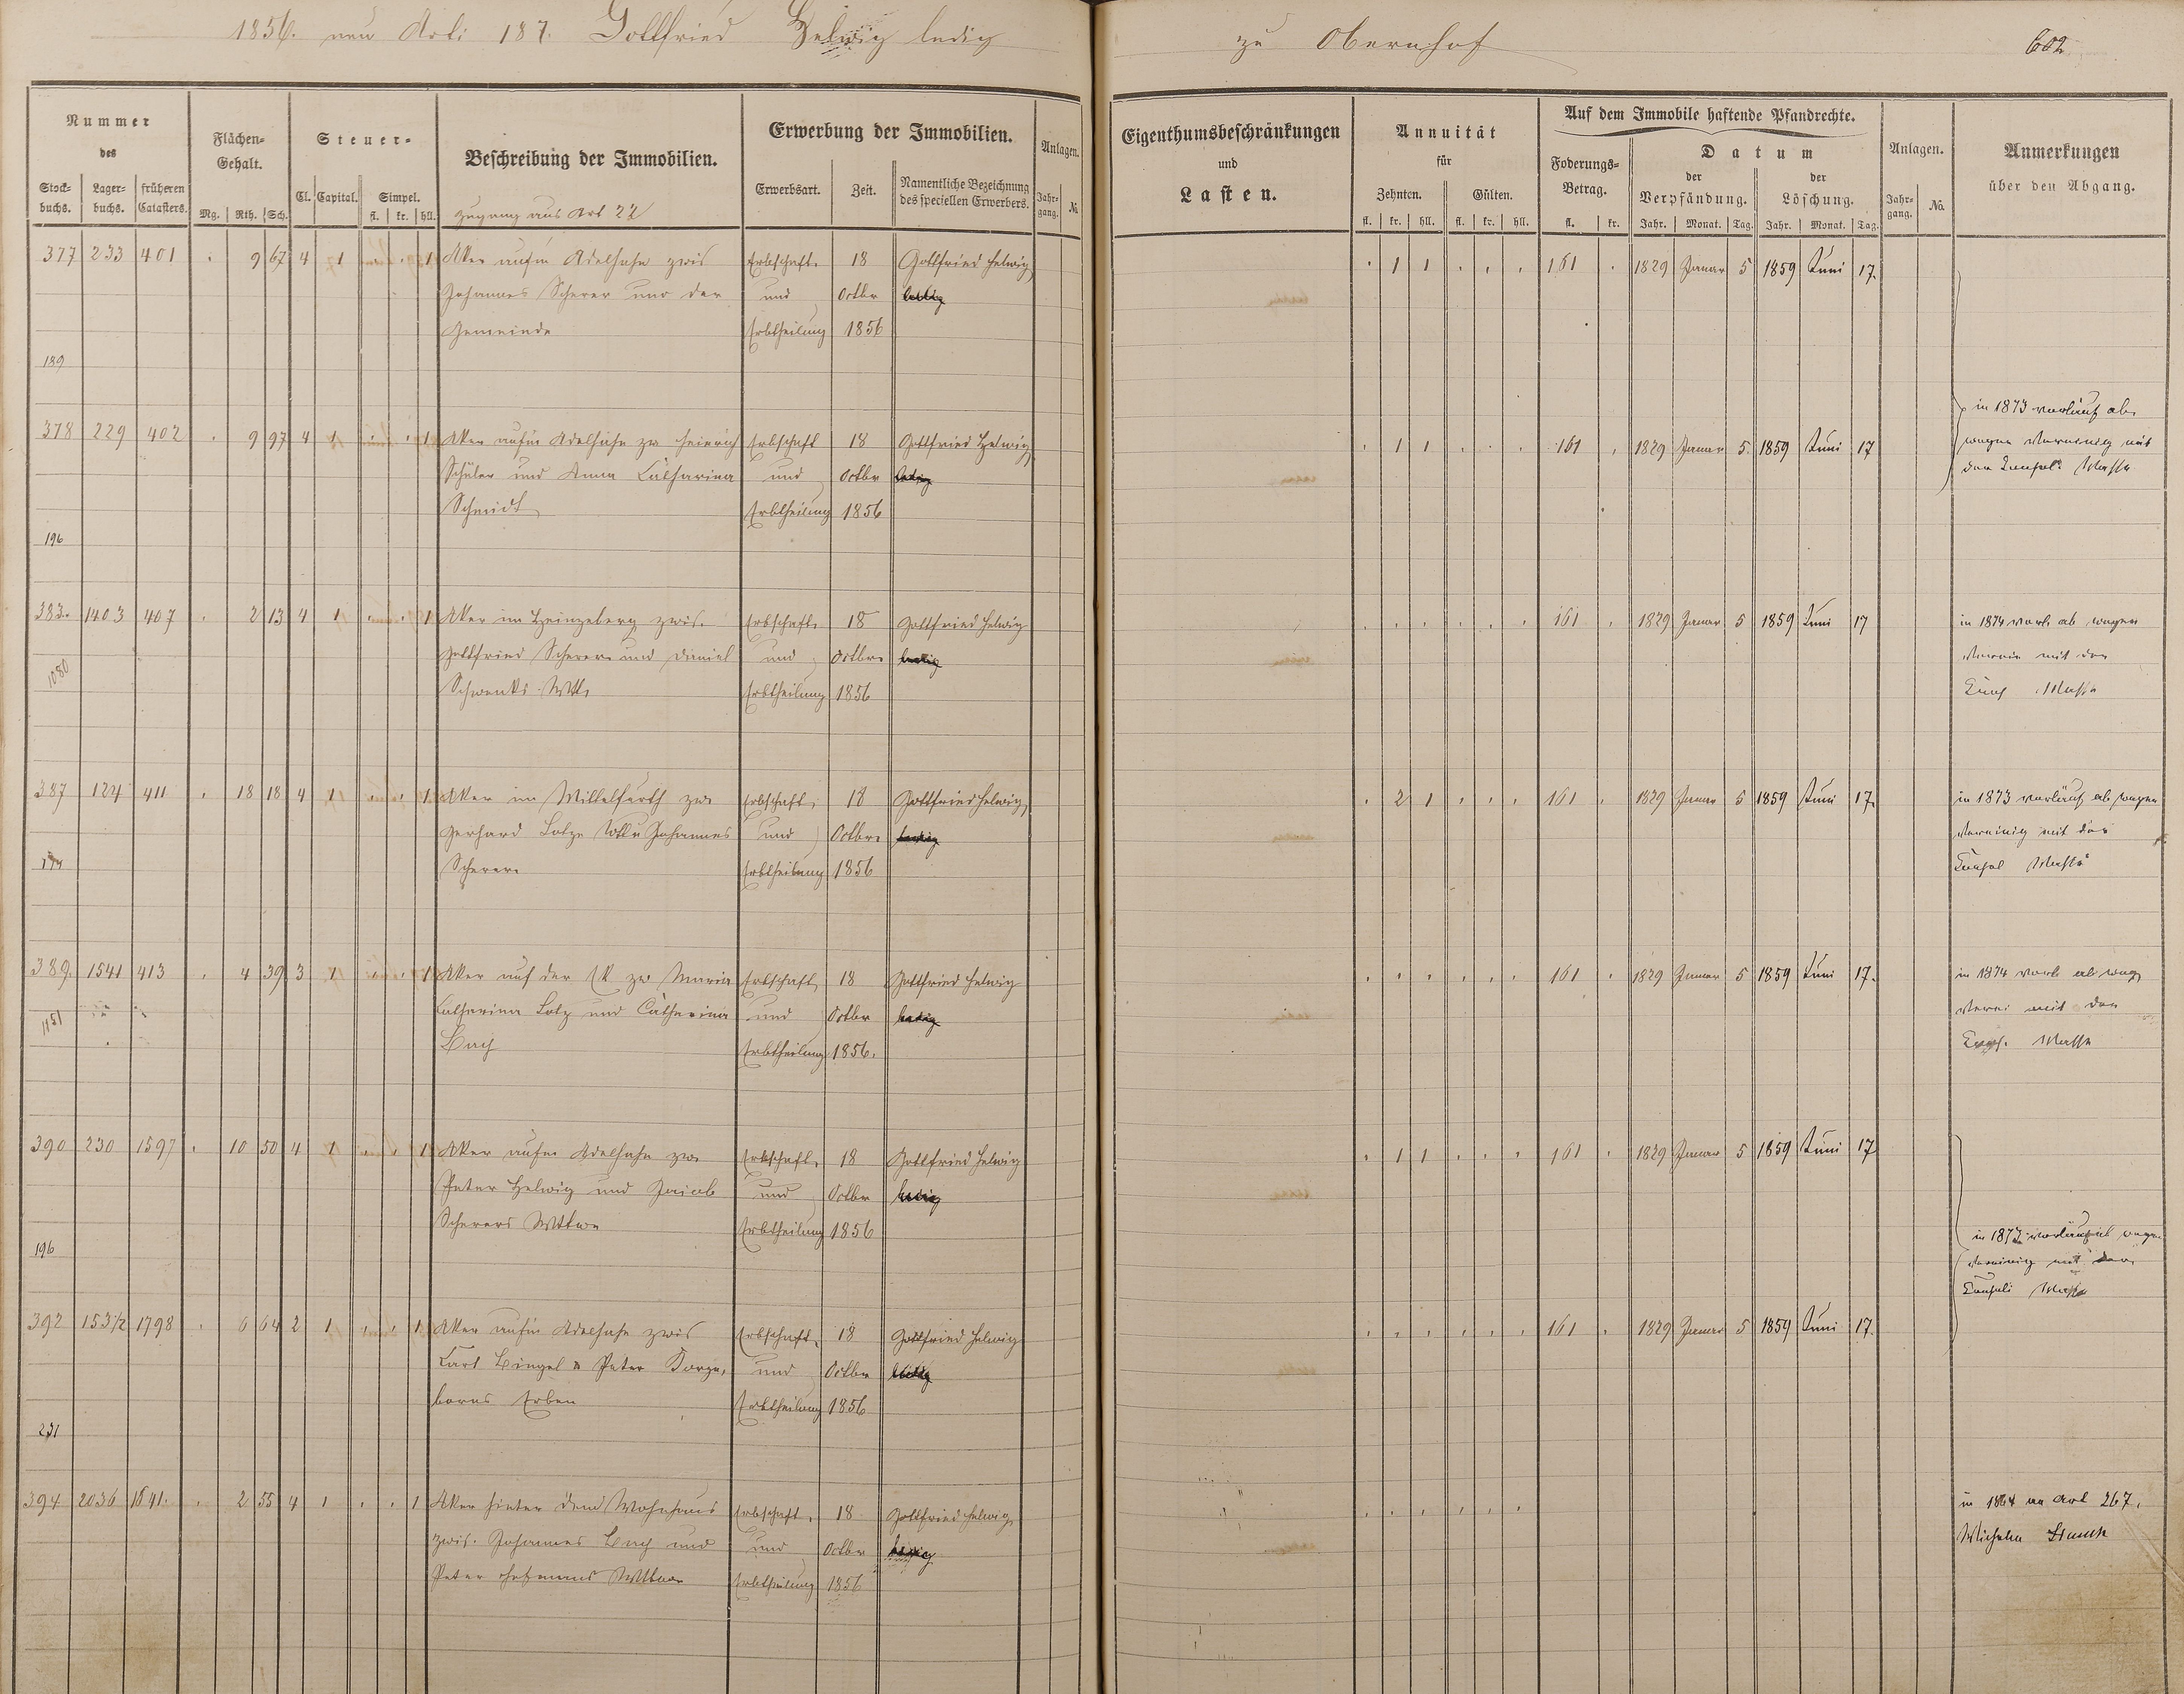 1856. neu Arti: 187. Gottfried Helwig ledig zu Obernhof 602
Nummer des
Stock-buchs. Lager-buchs. früheren Catasters.
Flächen-Gehalt.
Mg. Rth. Sch.
Steuer-
Cl. Capital. Simpel.
fl. kr. hll.
Beschreibung der Immobilien.
Zugang aus Art 22
Erwerbung der Immobilien.
Erwerbsart. Zeit. Namentliche Bezeichnung des speciellen Erwerbers.
Anlagen.
Jahr-gang. No.
Eigenthumsbeschränkungen
und
Lasten.
Annuität
für
Zehnten. Gülten.
fl. kr. hll. fl. kr. hll.
Auf dem Immobile haftende Pfandrechte.
Foderungs-Betrag.
fl. kr.
Datum
der Verpfändung. der Löschung.
Jahr. Monat. Tag. Jahr. Monat. Tag.
Anlagen.
Jahr-gang. No.
Anmerkungen
über den Abgang.
377 233 401 . 9 67 4 1 . . 1 Aker aufm Adelhahn zwis Erbschaft. 18 Gottfried Helwig . 1 1 . . . 161 . 1829 Januar 5 1859 Juni 17.
Johannes Scherer und der und Octbr ledig
Gemeinde Erbtheilung 1856
189
378 229 402 . 9 97 4 1 . . 1 Aker aufm Adelhahn zw Heinrich Erbschaft 18 Gottfried Helwig . 1 1 . . . 161 . 1829 Januar 5. 1859 Juni 17
Schüler und Anna Catharina und Octbr ledig
Schmidt Erbtheilung 1856
in 1873 vorläuf ab
wegen Vereinig mit
der Consol. Masse
196
383. 1403 407 . 2 13 4 1 . . 1 Aker im Heinzeberg zwis. Erbschaft. 18 Gottfried Helwig . . . . . . 161 . 1829 Januar 5 1859 Juni 17 in 1874 vorl. ab wegen
Gottfried Scherer und Daniel und Octbr. ledig Verein mit der
Schwenks Wtt. Erbtheilung 1856 Masse
1080
387 124 411 . 18 18 4 1 . . 1 Aker im Mittelfurth zw. Erbschaft, 18 Gottfried Helwig, . 2 1 . . . 161 . 1829 Januar 5 1859 Juni 17. in 1873 vorläuf ab wegen
Gerhard Lotze Johannes und Octbr. ledig Vereinig mit der
Scherer Erbtheilung 1856 Consol Masse
389. 1541 413 . 4 39 3 1 . . 1 Aker auf der zw Maria Erbschaft, 18 Gottfried Helwig . . . . . . 161 . 1829 Januar 5 1859 Juni 17. in 1874 vorl ab weg
Catharina Lotz und Catharina und Octbr ledig Verei mit der
Bach Erbtheilung 1856. Masse
1151
390 230 1597 . 10 50 4 1 . . 1 Aker aufm Adelhahn zw. Erbschaft. 18 Gottfried Helwig . 1 1 . . . 161 . 1829 Januar 5 1859 Juni 17
Peter Helwig und Jacob und Octbr ledig
Scherers Wittwe Erbtheilung 1856
196
in 1873 vorläuf ab wegen
Vereinig mit der
Consoli Masse
392 1798 . 6 64 2 1 . . 1 Aker aufm Adelhahn zwis Erbschaft. 18 Gottfried Helwig . . . . . . 161 . 1829 Januar 5 1859 Juni 17.
Carl Bingel & Peter und Octbr ledig
borns Erben Erbtheilung 1856
394 2036 1841. . 2 55 4 1 . . 1 Aker hinter dem Wohnhaus Erbschaft. 18 Gottfried Helwig . . . . . . in 1864 an Art 267.
zwis. Johannes Bach und und Octbr ledig Wilhelm
Peter Wittwe Erbtheilung 1856